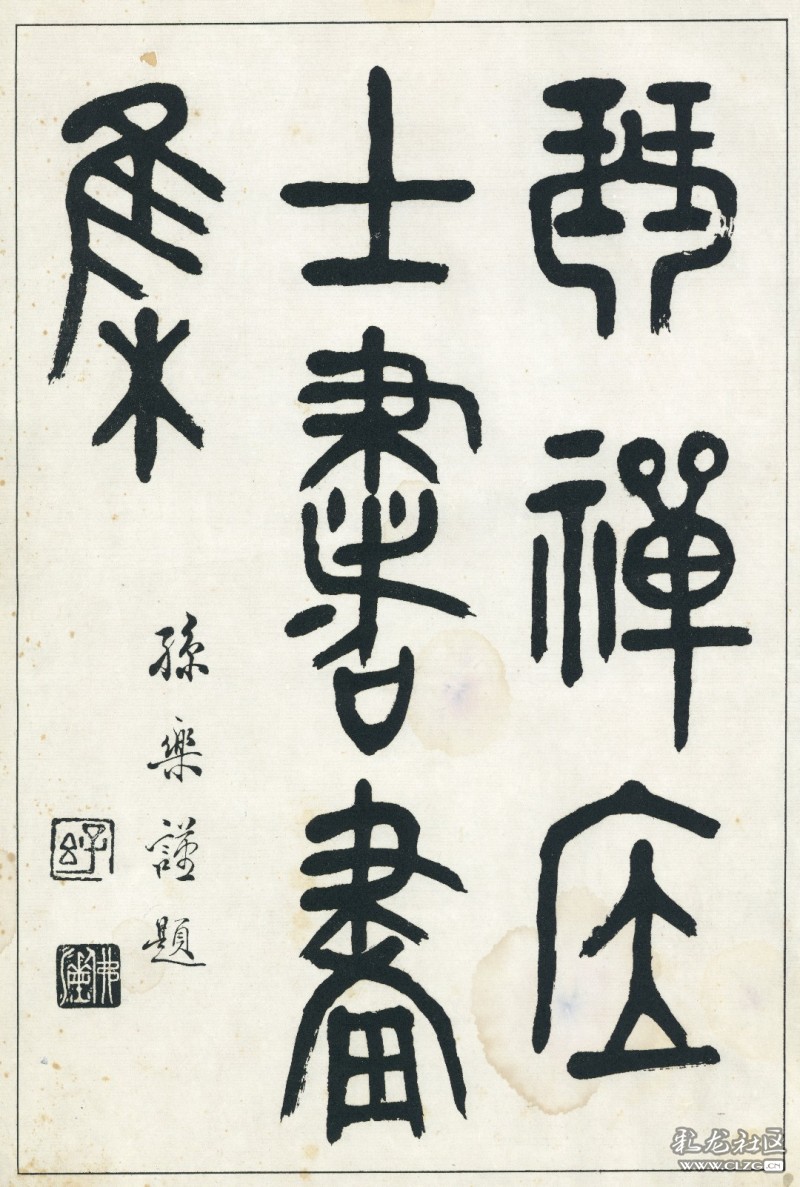 琴禪居
士書畫
集
孫樂謹題
彩龙社区
WWW.CLZG.CN